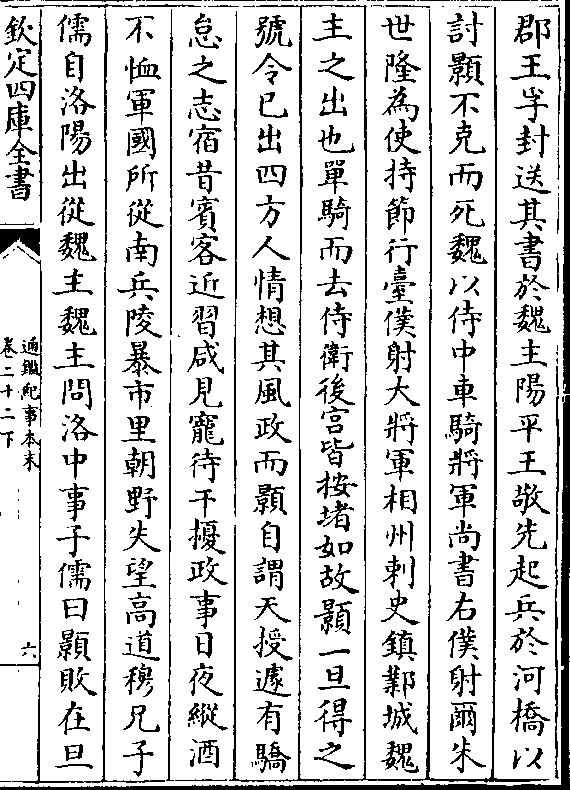 郡王孚封送其書於魏主陽平王敬先起兵於河橋以
討顥不克而死魏以侍中車騎將軍尚書右僕射爾朱
世隆為使持節行臺僕射大將軍相州刺史鎮鄴城魏
主之出也單騎而去侍衛後宮皆按堵如故顥一旦得之
號令已出四方人情想其風政而顥自謂天授遽有驕
怠之志宿昔賓客近習咸見寵待干擾政事日夜縱酒
不恤軍國所從南兵陵暴市里朝野失望高道穆兄子
儒自洛陽出從魏主魏主問洛中事子儒曰顥敗在旦
欽定四庫全書
通鑑紀事本末
卷二十二下
六